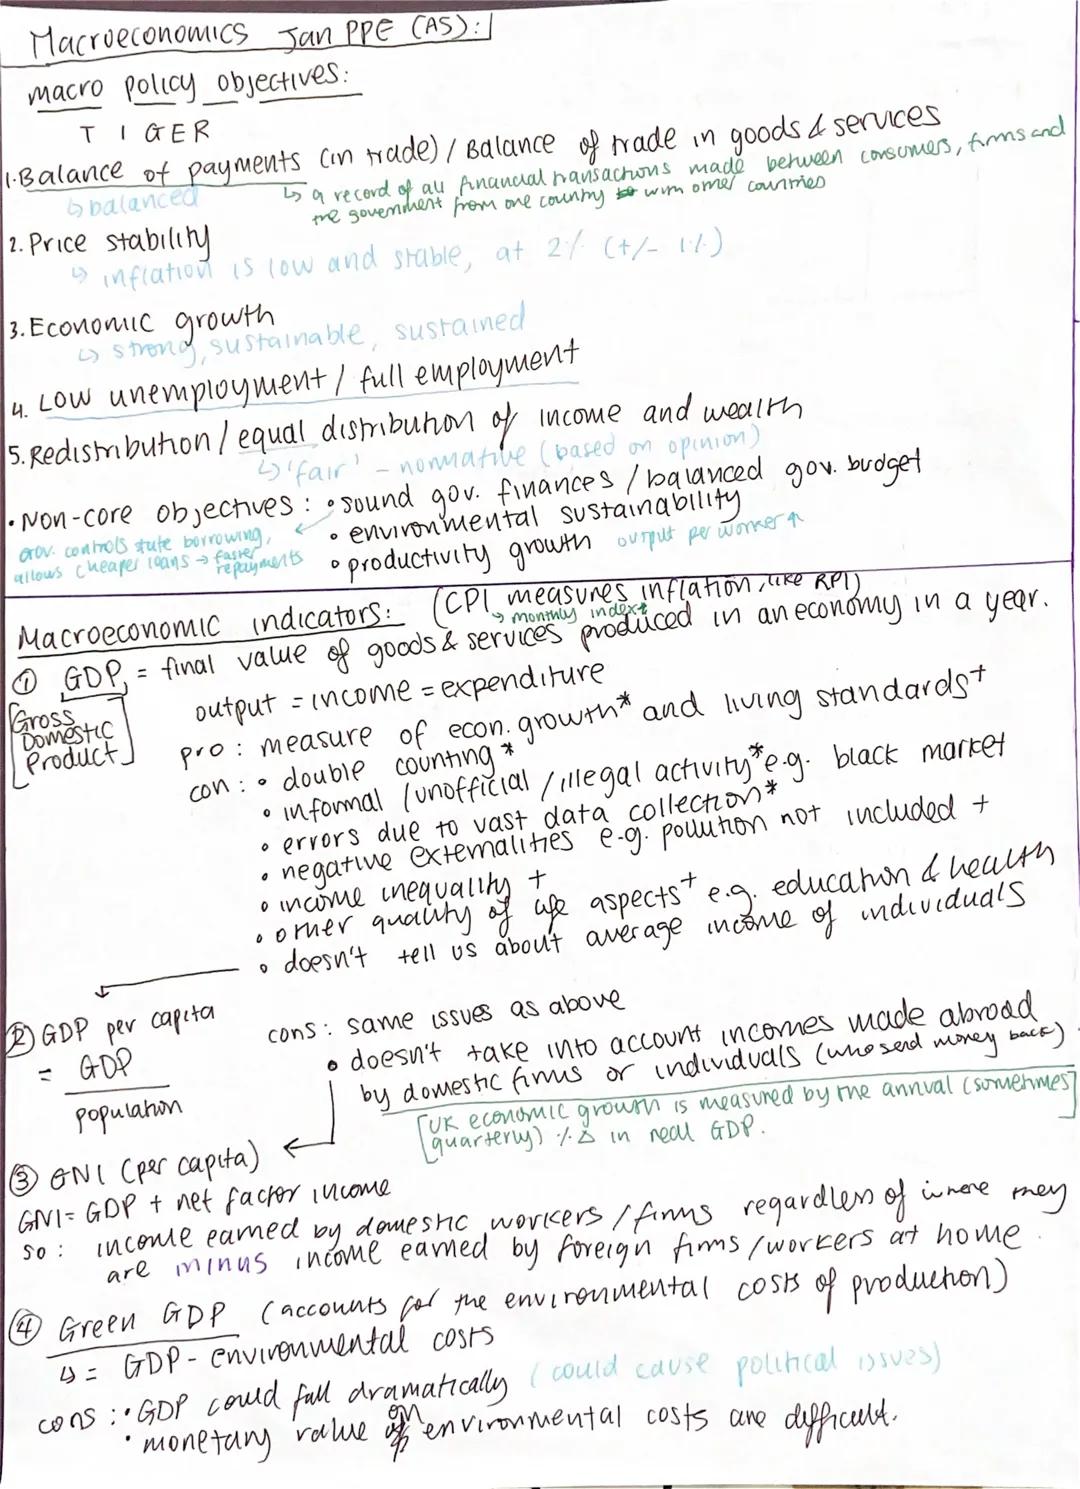 Macroeconomics Jan PPE (AS):
macro policy objectives:
T I GER
1. Balance of payments (in trade) / Balance of trade in goods & services
↳ balanced
↳ a record of all financial transactions made between consumers, firms and
the government from one country with other countries
2. Price stability
↳ inflation is low and stable, at 2% (+/- 1%)
3. Economic growth
↳ strong, sustainable, sustained
4. Low unemployment / full employment
5. Redistribution / equal distribution of income and wealth
↳ 'fair' - normative (based on opinion)
• Non-core objectives: • sound gov. finances / balanced gov. budget
gov. controls state borrowing,
allows cheaper loans → faster repayments
• environmental sustainability
• productivity growth output per worker ↑
Macroeconomic indicators: (CPI measures inflation, like RPI)
→ monthly index
① GDP, = final value of goods & services produced in an economy in a year.
[Gross
Domestic
Product]
output = income = expenditure
pro: measure of econ. growth* and living standards+
con: • double counting *
• informal /unofficial /illegal activity* e.g. black market
• errors due to vast data collection*
• negative externalities e.g. pollution not included +
• income inequality +
• other quality of life aspects+ e.g. education & health
• doesn't tell us about average income of individuals
② GDP per capita
= GDP
population
cons: same issues as above
• doesn't take into account incomes made abroad
by domestic firms or individuals (who send money back)
[UK economic growth is measured by the annual (sometimes
quarterly) % Δ in real GDP.]
③ GNI (per capita)
GNI = GDP + net factor income
so: income earned by domestic workers / firms regardless of where they
are minus income earned by foreign firms /workers at home.
④ Green GDP (accounts for the environmental costs of production)
↳ = GDP - environmental costs
cons: • GDP could fall dramatically (could cause political issues)
• monetary value on environmental costs are difficult.